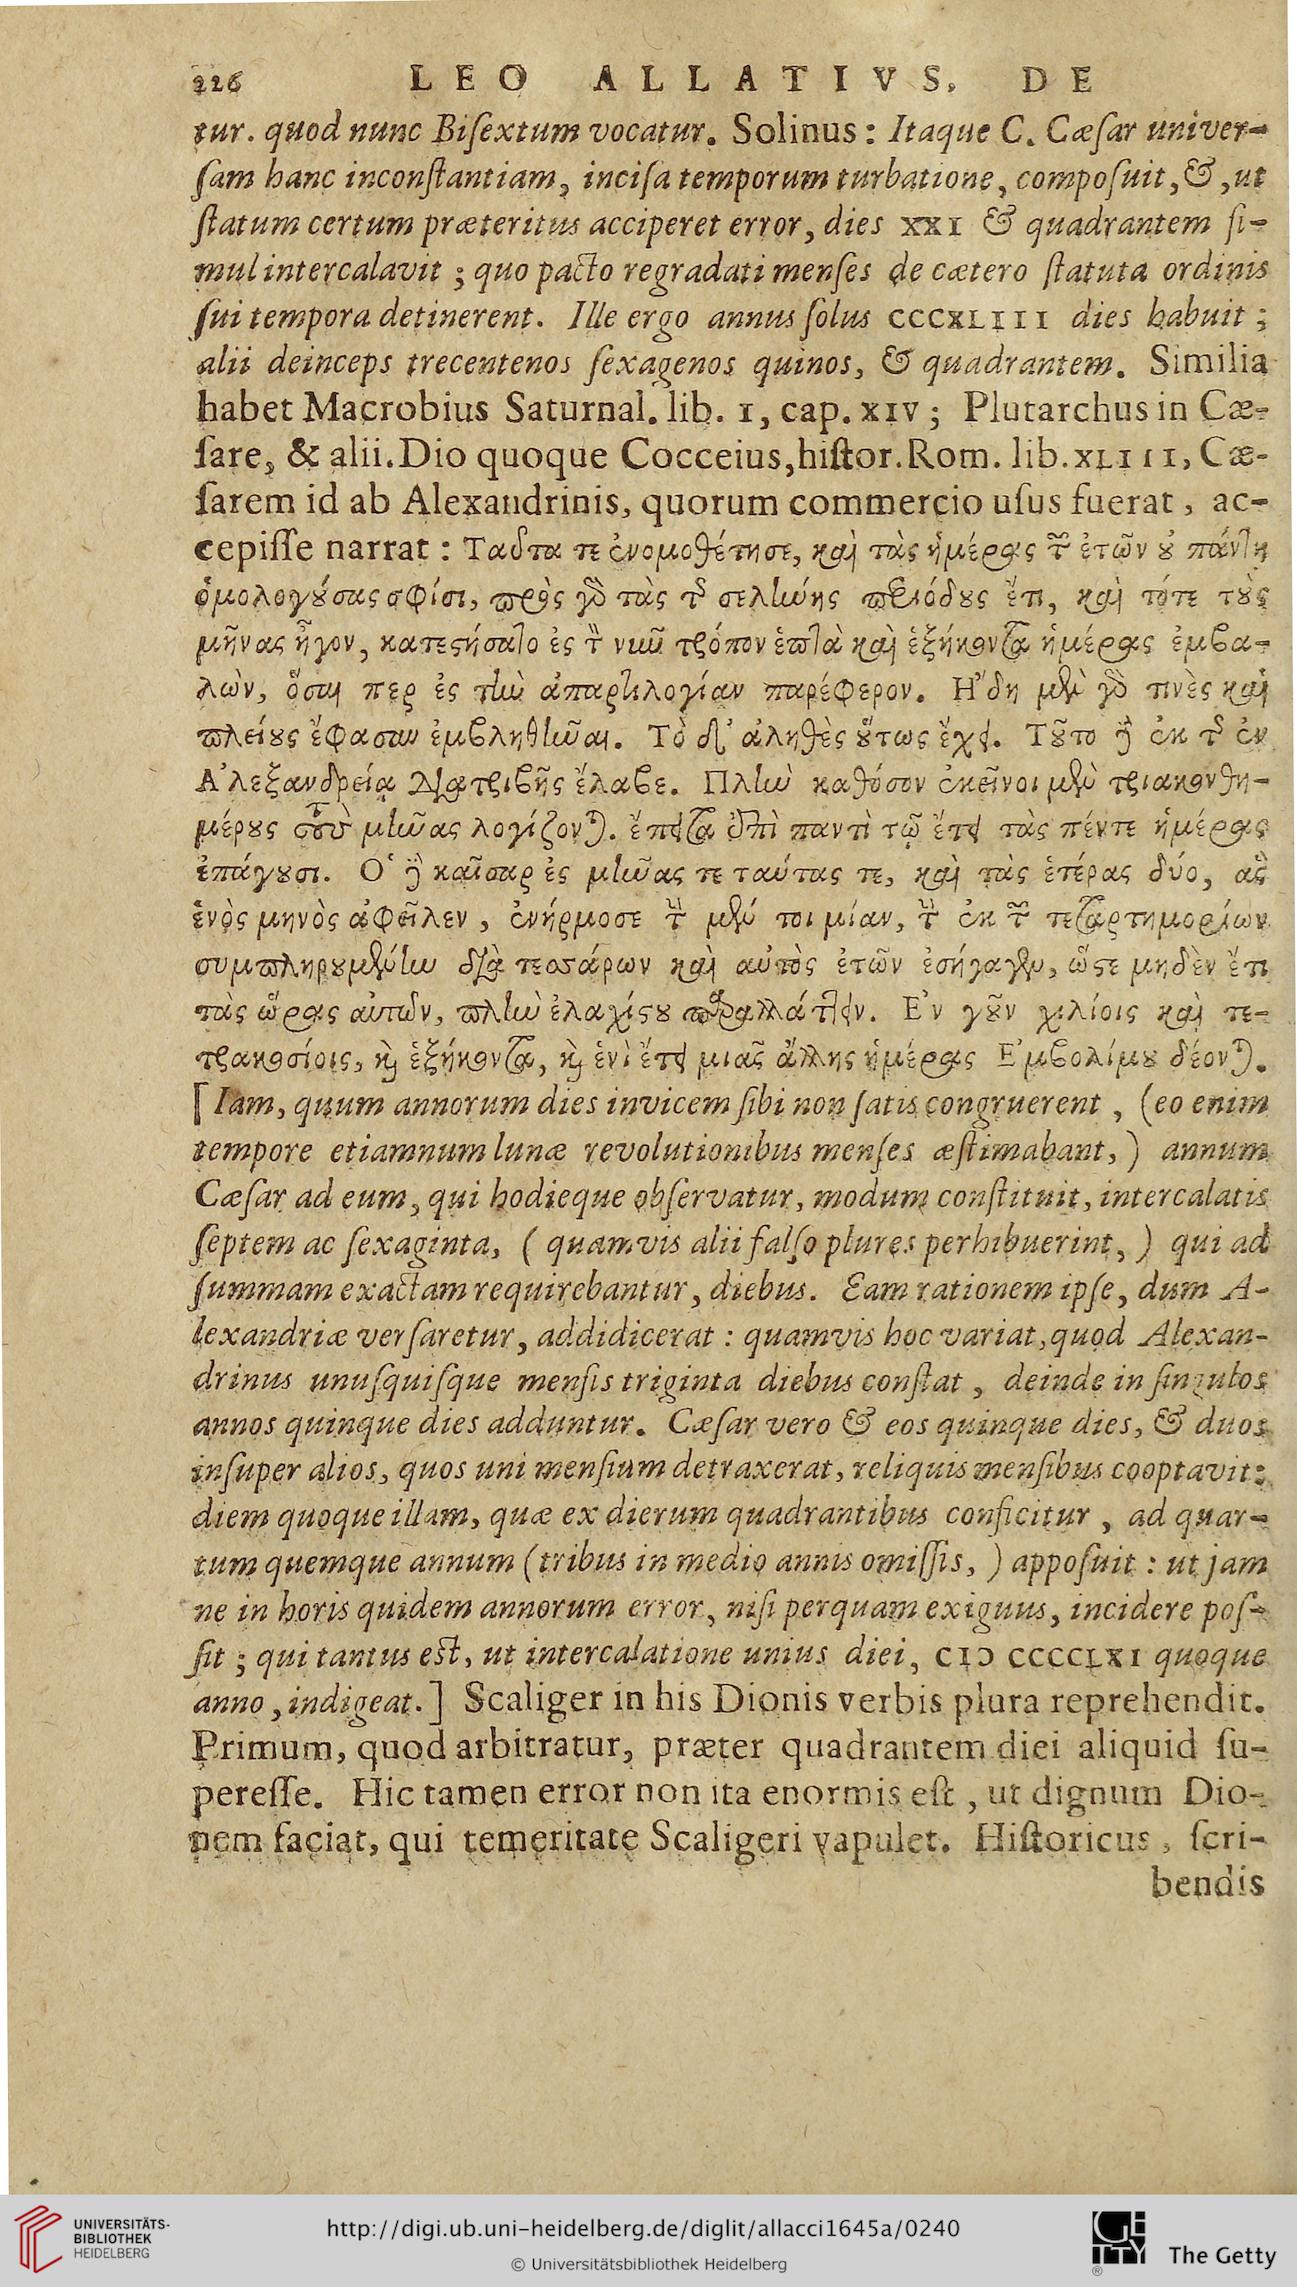 226 LEO ALLATIVS, DE
tur. quod nunc Biſextum vocatur. Solinus: Itaque C. Cæſar univer-
ſam hanc inconſtantiam, inciſa temporum turbatione, compoſuit, &, ut
ſtatum certum præteritus acciperet error, dies XXI & quadrantem ſi-
mul intercalavit; quo pacto regradati menſes de cætero ſtatuta ordinis
ſui tempora detinerent. Ille ergo annus ſolus CCCXLIII dies habuit;
alii deinceps trecentenos ſexagenos quinos, & quadrantem. Similia
habet Macrobius Saturnal. lib. I, cap. XIV; Plutarchus in Cæ-
ſare, & alii. Dio quoque Cocceius, hiſtor. Rom. lib. XLIII, Cæ-
ſarem id ab Alexandrinis, quorum commercio uſus fuerat, ac-
cepiſſe narrat: Ταδτα τε ἐνομοθέτησε, καὶ τὰς ἡμέρας τῶν ἐτῶν οὐ πάντη
ὁμολογούσας σφίσι, πρὸς γὸ τὰς τῆς σελήνης περιόδους ἔτι, καὶ τότε τοὺς
μῆνας ἦγον, κατεστήσατο ἐς τὸν νιῦ τρόπον ἑπτὰ καὶ ἑξήκοντα ἡμέρας ἐμβα-
λὼν, ὅσαι περ ἐς τὴν ἀπαρτιλογίαν παρέφερον. Ἤδη μὲν γὸ τινὲς καὶ
πλείους ἔφασαν ἐμβληθῆναι. Τὸ δ' ἀληθὲς οὕτως ἔχει. Τοῦτο δὲ ἐκ τῆς ἐν
Ἀλεξανδρείᾳ Διατριβῆς ἔλαβε. Πλὴν καθόσον ἐκεῖνοι μὲν τριακονθη-
μέρους τοὺς μῆνας λογίζονται. ἔπειτα ἐπὶ παντὶ τῷ ἔτει τὰς πέντε ἡμέρας
ἐπάγουσι. Ὁ δὲ καῖσαρ ἐς μῆνας τε ταύτας τε, καὶ τὰς ἑτέρας δύο, ἃς
ἑνὸς μηνὸς ἀφεῖλεν, ἐνήρμοσε τὴν μέν τοι μίαν, τὴν ἐκ τῶν τεταρτημορίων
συμπληρουμένην διὰ τεσσάρων καὶ αὐτὸς ἐτῶν ἐσήγαγεν, ὥστε μηδὲν ἔτι
τὰς ὥρας αὐτῶν, πλὴν ἐλαχίστου παραλλάττειν. Ἐν γοῦν χιλίοις καὶ τε-
τρακοσίοις, καὶ ἑξήκοντα, καὶ ἑνὶ ἔτει μιᾶς ἄλλης ἡμέρας Ἐμβολίμου δέονται.
[Iam, quum annorum dies invicem ſibi non ſatis congruerent, (eo enim
tempore etiamnum lunæ revolutionibus menſes æſtimabant,) annum
Cæſar ad eum, qui hodieque obſervatur, modum conſtituit, intercalatis
ſeptem ac ſexaginta, (quamvis alii falſo plures perhibuerint,) qui ad
ſummam exactam requirebantur, diebus. Eam rationem ipſe, dum A-
lexandriæ verſaretur, addidicerat: quamvis hoc variat, quod Alexan-
drinus unuſquiſque menſis triginta diebus conſtat, deinde in ſingulos
annos quinque dies adduntur. Cæſar vero & eos quinque dies, & duos
inſuper alios, quos uni menſium detraxerat, reliquis menſibus cooptavit:
diem quoque illam, quæ ex dierum quadrantibus conficitur, ad quar-
tum quemque annum (tribus in medio annis omiſſis,) appoſuit: ut jam
ne in horis quidem annorum error, niſi perquam exiguus, incidere poſ-
ſit; qui tantus eſt, ut intercalatione unius diei, CIↃ CCCCLXI quoque
anno, indigeat.] Scaliger in his Dionis verbis plura reprehendit.
Primum, quod arbitratur, præter quadrantem diei aliquid ſu-
pereſſe. Hic tamen error non ita enormis eſt, ut dignum Dio-
nem faciat, qui temeritate Scaligeri vapulet. Hiſtoricus, ſcri-
bendis
UNIVERSITÄTS-
BIBLIOTHEK
HEIDELBERG
http://digi.ub.uni-heidelberg.de/diglit/allacci1645a/0240
© Universitätsbibliothek Heidelberg
GETTY
®
The Getty